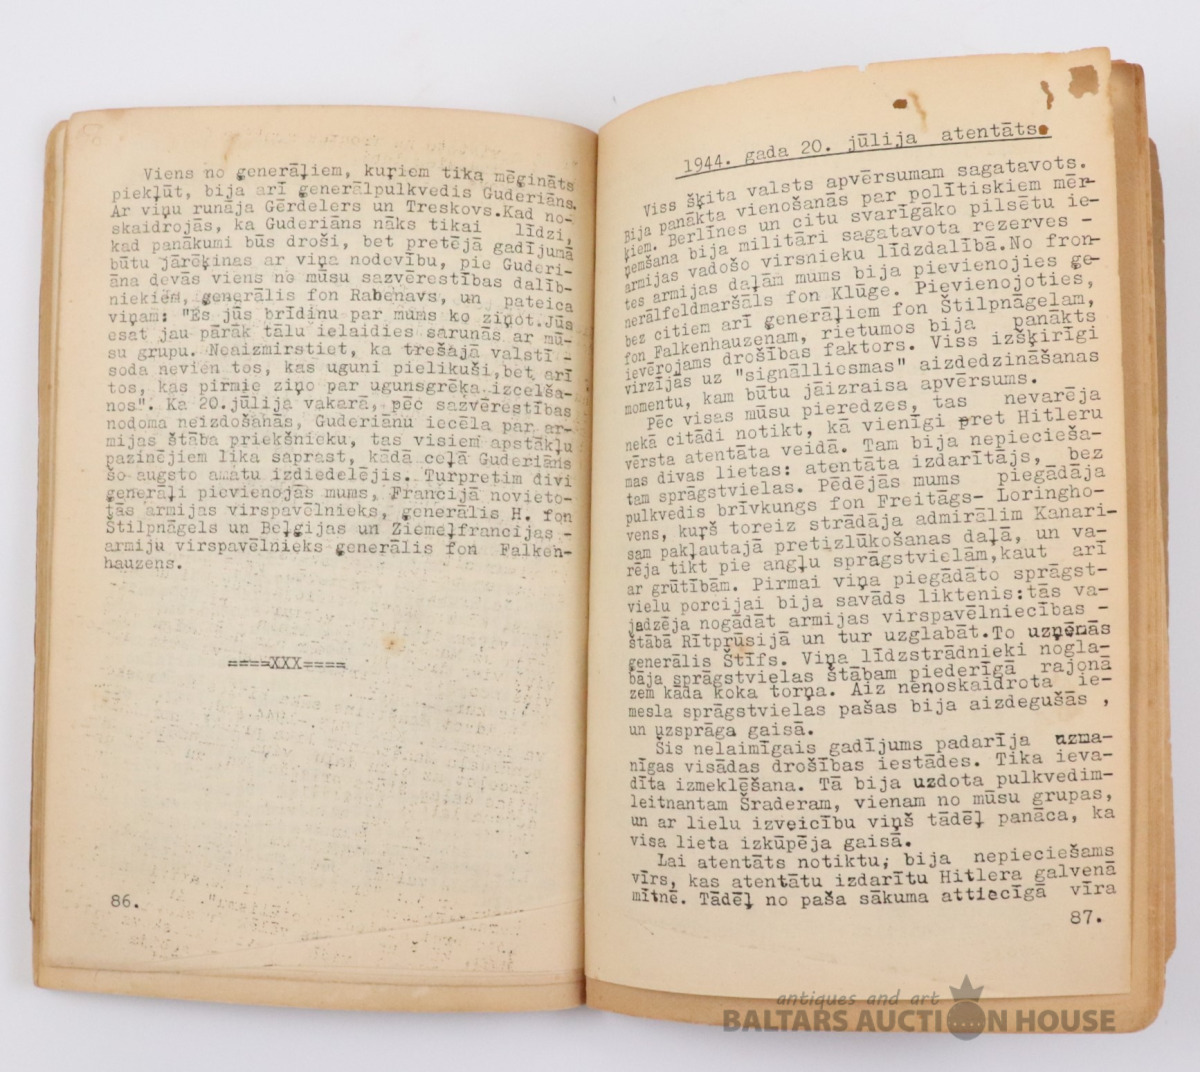 Viens no ģenerāļiem, kuŗiem tika mēģināts
piekļūt, bija arī ģenerālpulkvedis Guderiāns.
Ar viņu runāja Gērdelers un Treskovs.Kad no-
skaidrojās, ka Guderiāns nāks tikai līdzi,
kad panākumi būs droši, bet pretējā gadījumā
būtu jārēķinas ar viņa nodevību, pie Guderi-
āna devās viens no mūsu sazvērestības dalīb-
niekiem, ģenerālis fon Rabenavs, un pateica
viņam: "Es jūs brīdinu par mums ko ziņot.Jūs
esat jau pārāk tālu ielaidies sarunās ar mū-
su grupu. Neaizmirstiet, ka trešajā valstī -
soda nevien tos, kas uguni pielikuši,bet arī
tos, kas pirmie ziņo par ugunsgrēka izcelša-
nos". Ka 20.jūlija vakarā, pēc sazvērestības
nodoma neizdošanās, Guderiānu iecēla par ar-
mijas štāba priekšnieku, tas visiem apstākļu
pazinējiem lika saprast, kādā ceļā Guderiāns
šo augsto amatu izdiedelējis. Turpretim divi
ģenerāļi pievienojās mums, Francijā novieto-
tās armijas virspavēlnieks, ģenerālis H. fon
Štilpnāgels un Beļģijas un Ziemeļfrancijas -
armiju virspavēlnieks ģenerālis fon Falken-
hauzens.
====XXX====
86.
1944. gada 20. jūlija atentāts.
Viss šķita valsts apvērsumam sagatavots.
Bija panākta vienošanās par polītiskiem mēr-
ķiem. Berlīnes un citu svarīgāko pilsētu ie-
ņemšana bija militāri sagatavota rezerves -
armijas vadošo virsnieku līdzdalībā.No fron-
tes armijas daļām mums bija pievienojies ģe-
nerālfeldmaršāls fon Klūge. Pievienojoties,
bez citiem arī ģenerāļiem fon Štilpnāgelam,
fon Falkenhauzenam, rietumos bija panākts
ievērojams drošības faktors. Viss izšķirīgi
virzījās uz "signālliosmas" aizdedzināšanas
momentu, kam būtu jāizraisa apvērsums.
Pēc visas mūsu pieredzes, tas nevarēja
nekā citādi notikt, kā vienīgi pret Hitleru
vērsta atentāta veidā. Tam bija nepiecieša-
mas divas lietas: atentāta izdarītājs, bez
tam sprāgstvielas. Pēdējās mums piegādāja
pulkvedis brīvkungs fon Freitāgs- Loringho-
vens, kuŗš toreiz strādāja admirālim Kanari-
sam pakļautajā pretizlūkošanas daļā, un va-
rēja tikt pie angļu sprāgstvielām,kaut arī
ar grūtībām. Pirmai viņa piegādāto sprāgst-
vielu porcijai bija savāds liktenis:tās va-
jadzēja nogādāt armijas virspavēlniecības -
štābā Rītprūsijā un tur uzglabāt.To uzņēmās
ģenerālis Štīfs. Viņa līdzstrādnieki nogla-
bāja sprāgstvielas štābam piederīgā rajonā
zem kāda koka torņa. Aiz nenoskaidrota ie-
mesla sprāgstvielas pašas bija aizdegušās ,
un uzsprāga gaisā.
Šis nelaimīgais gadījums padarīja uzma-
nīgas visādas drošības iestādes. Tika ieva-
dīta izmeklēšana. Tā bija uzdota pulkvedim-
leitnantam Šraderam, vienam no mūsu grupas,
un ar lielu izveicību viņš tādēļ panāca, ka
visa lieta izkūpēja gaisā.
Lai atentāts notiktu, bija nepieciešams
vīrs, kas atentātu izdarītu Hitlera galvenā
mītnē. Tādēļ no paša sākuma attiecīgā vīra
87.
antiques and art
BALTARS AUCTION HOUSE